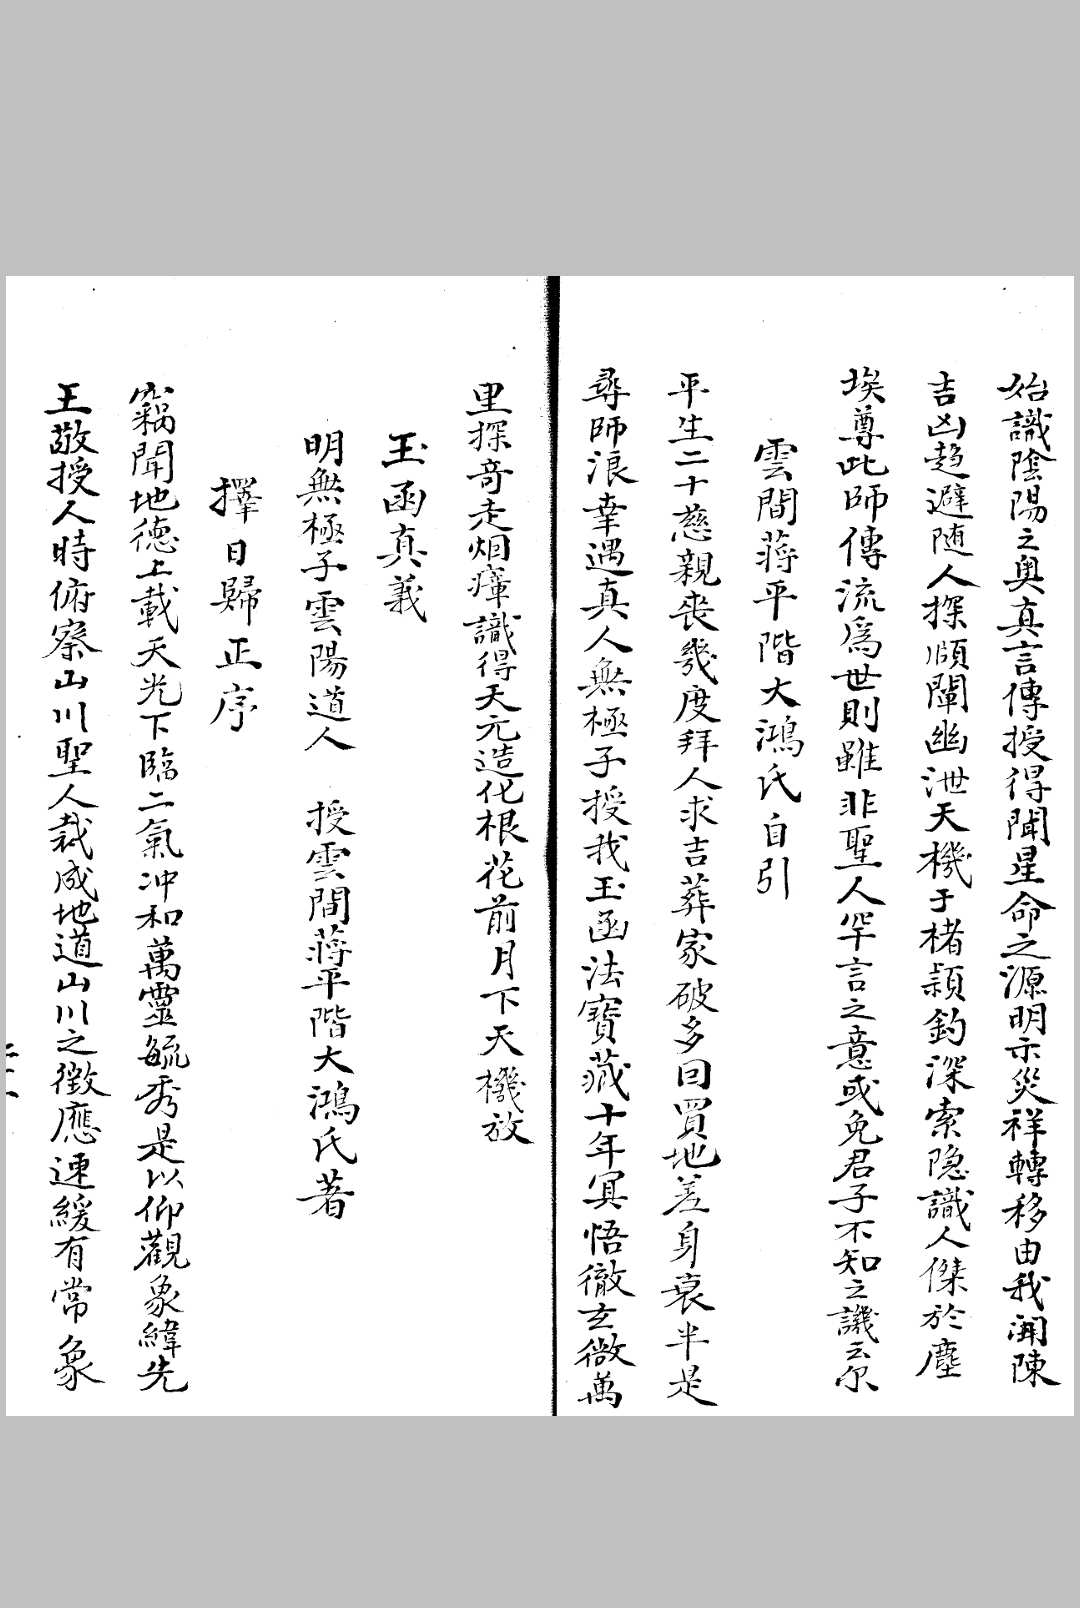 始識陰陽之奥真言傳授得聞星命之源明示災祥轉移由我開陳
吉凶趋避随人探頤闡幽泄天機于楮頴釣深索隐識人傑於塵
埃尊此師傳流為世則雖非聖人罕言之意或免君子不知之譏云尔
雲間蔣平階大鴻氏自引
平生二十慈親喪幾度拜人求吉葬家破多囙買地差身衰半是
尋師浪幸遇真人無極子授我玉函法寶藏十年冥悟徹玄微萬
里探竒走烟瘴識得天元造化根花前月下天機放
玉函真義
明無極子雲陽道人 授雲間蔣平階大鴻氏著
擇日歸正序
竊聞地德上載天光下臨二氣冲和萬靈毓秀是以仰觀象緯先
王敬授人時俯察山川聖人裁成地道山川之徵應速緩有常象